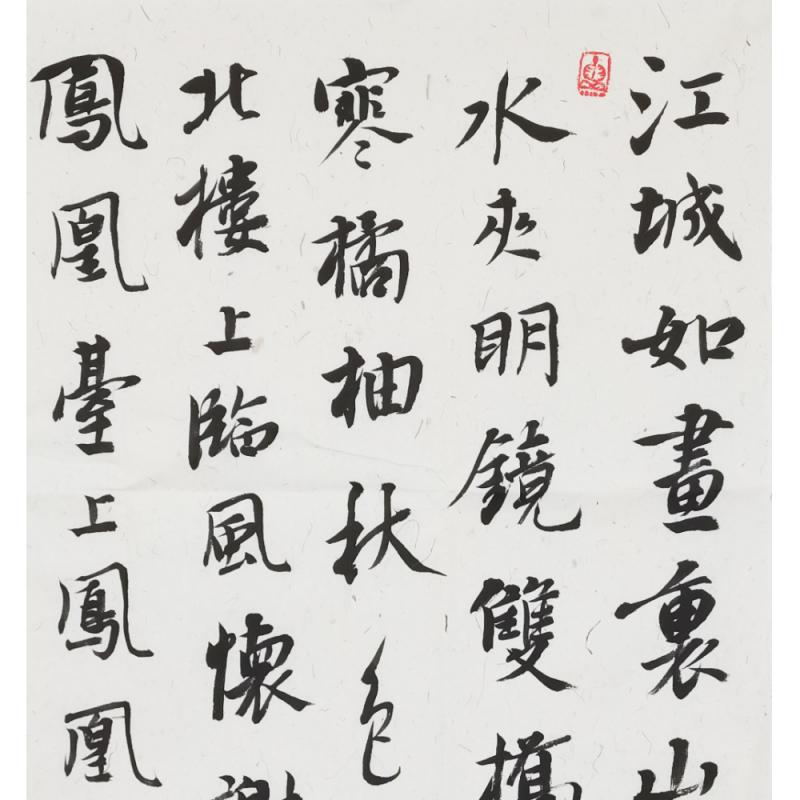 江城如畫裏山
水夾明鏡雙橋
寒橘柚秋色
北樓上臨風懷謝
鳳凰臺上鳳凰